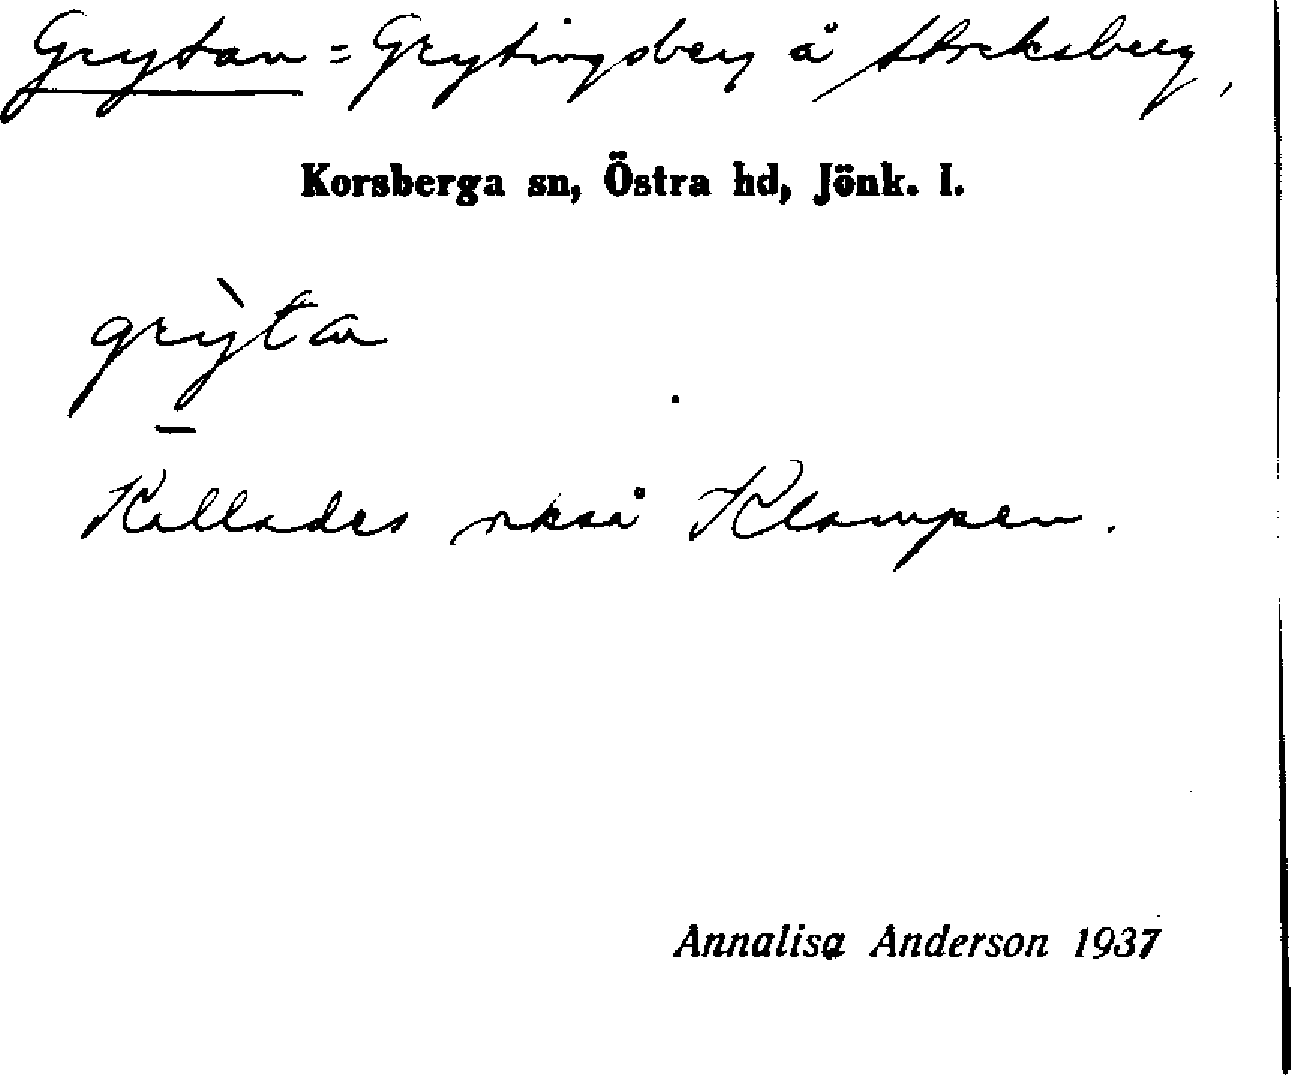 Grytan = Grytingsberg å Storksberg,
Korsberga sn, Östra hd, Jönk. l.
grỳta
Kallades också Klampen.
Annalisa Anderson 1937